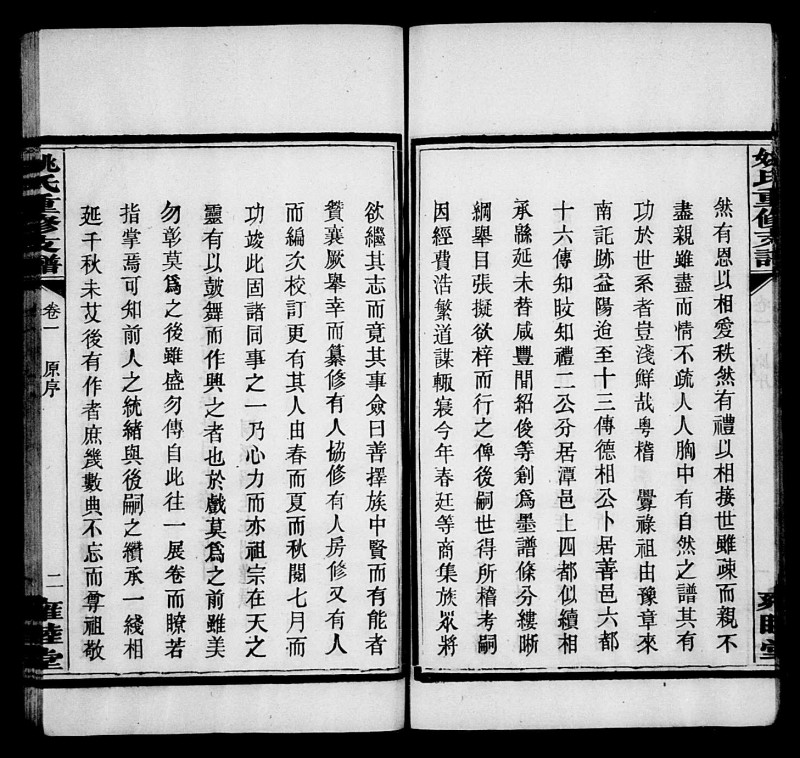 姚氏重修支譜
雍睦堂
然有恩以相愛秩然有禮以相接世雖疎而親不
盡親雖盡而情不疏人人胸中有自然之譜其有
功於世系者豈淺鮮哉粵稽 舋祿祖由豫章來
南託跡益陽迨至十三傳德相公卜居善邑六都
十六傳知旼知禮二公分居潭邑上四都似續相
承緜延未替咸豐間紹俊等創爲墨譜條分縷晰
綱舉目張擬欲梓而行之俾後嗣世得所稽考嗣
因經費浩繁道謀輒寢今年春廷等商集族眾將
欲繼其志而竟其事僉曰善擇族中賢而有能者
贊襄厥舉幸而纂修有人協修有人房修又有人
而編次校訂更有其人由春而夏而秋閱七月而
功竣此固譜同事之一乃心力而亦祖宗在天之
靈有以鼓舞而作興之者也於戲莫爲之前雖美
勿彰莫爲之後雖盛勿傳自此往一展卷而瞭若
指掌焉可知前人之統緒與後嗣之纘承一綫相
延千秋未艾後有作者庶幾數典不忘而尊祖敬
姚氏重修支譜
卷一 原序
二
雍睦堂